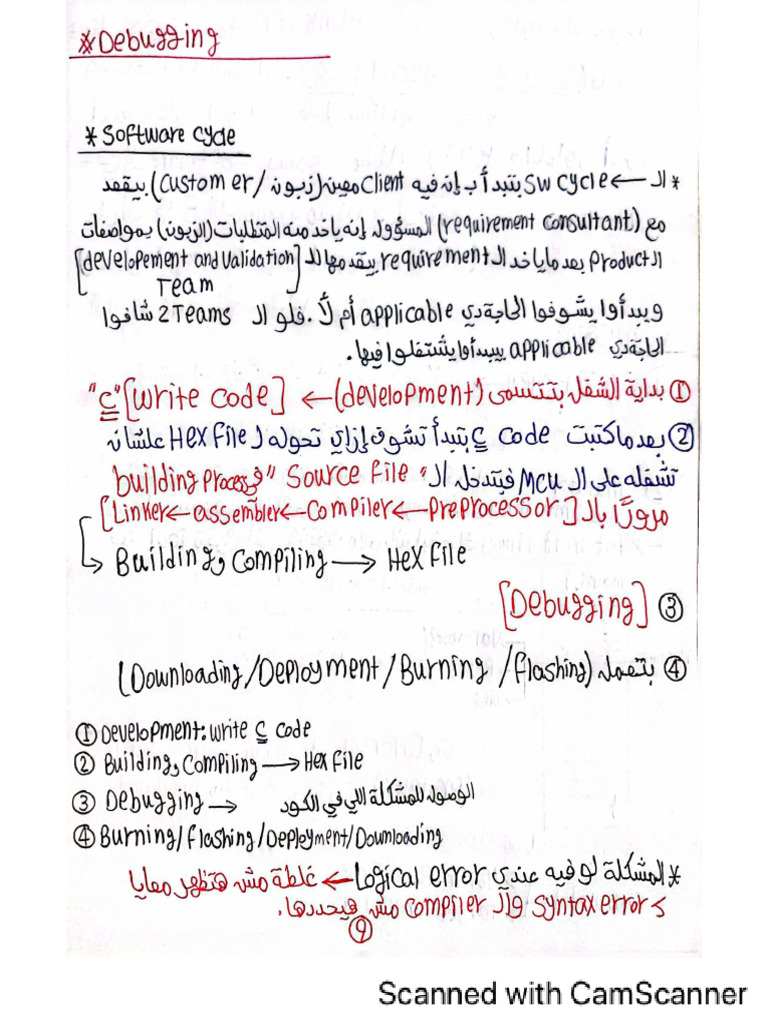 ※Debugging
* Software cycle
* الـ ← SW cycle بتبدأ ب إنه فيه Client معين (زبون / Customer) بيقعد
مع (requirement consultant) المسؤول إنه ياخد منه المتطلبات (الزبون) بمواصفات
الـ Product بعد ما ياخد الـ requirement بيقدمها للـ [developement and Validation
Team]
ويبدأوا يشوفوا الحاجة دي applicable أم لأ. فلو الـ 2 Teams شافوا
الحاجة دي applicable بيبدأوا يشتغلوا فيها.
① بداية الشغل بتتسمى (development) ← [write code] "C"
② بعد ما كتبت C code بتبدأ تشوف إزاي تحوله لـ Hex File علشان
تشغله على الـ MCU فبتدخل الـ "Source File" في building Process
مرورًا بالـ [Linker ← assembler ← Compiler ← PreProcessor]
↳ Building و Compiling → Hex File
③ [Debugging]
④ بتعمل (Downloading / Deployment / Burning / flashing)
① Development: write C code
② Building و Compiling → Hex File
③ Debugging → الوصول للمشكلة اللي في الكود
④ Burning / flashing / Deployment / Downloading
* المشكلة لو فيه عندي Logical error ← غلطة مش هتظهر معايا
> Syntax error والـ Compiler مش هيحددها.
⑨
Scanned with CamScanner